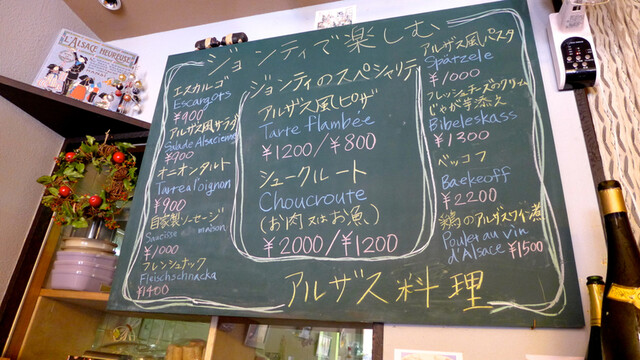 L'ALSACE HEUREUSE
ジョンティで楽しむ
エスカルゴ
Escargots
¥900
アルザス風サラダ
Salade Alsacienne
¥900
オニオンタルト
Tarte a l'oignon
¥900
自家製ソーセージ
Saucisse maison
¥1000
フレシュナック
Fleischschnacka
¥1400
ジョンティのスペシャリテ
アルザス風ピザ
Tarte flambée
¥1200/¥800
シュークルート
Choucroute
(お肉又はお魚)
¥2000/¥1200
アルザス風パスタ
Spätzele
¥1000
フレッシュチーズのクリーム
じゃが芋添え
Bibeleskass
¥1300
ベッコフ
Baekeoff
¥2200
鶏のアルザスワイン煮
Poulet au vin
d'Alsace ¥1500
アルザス料理